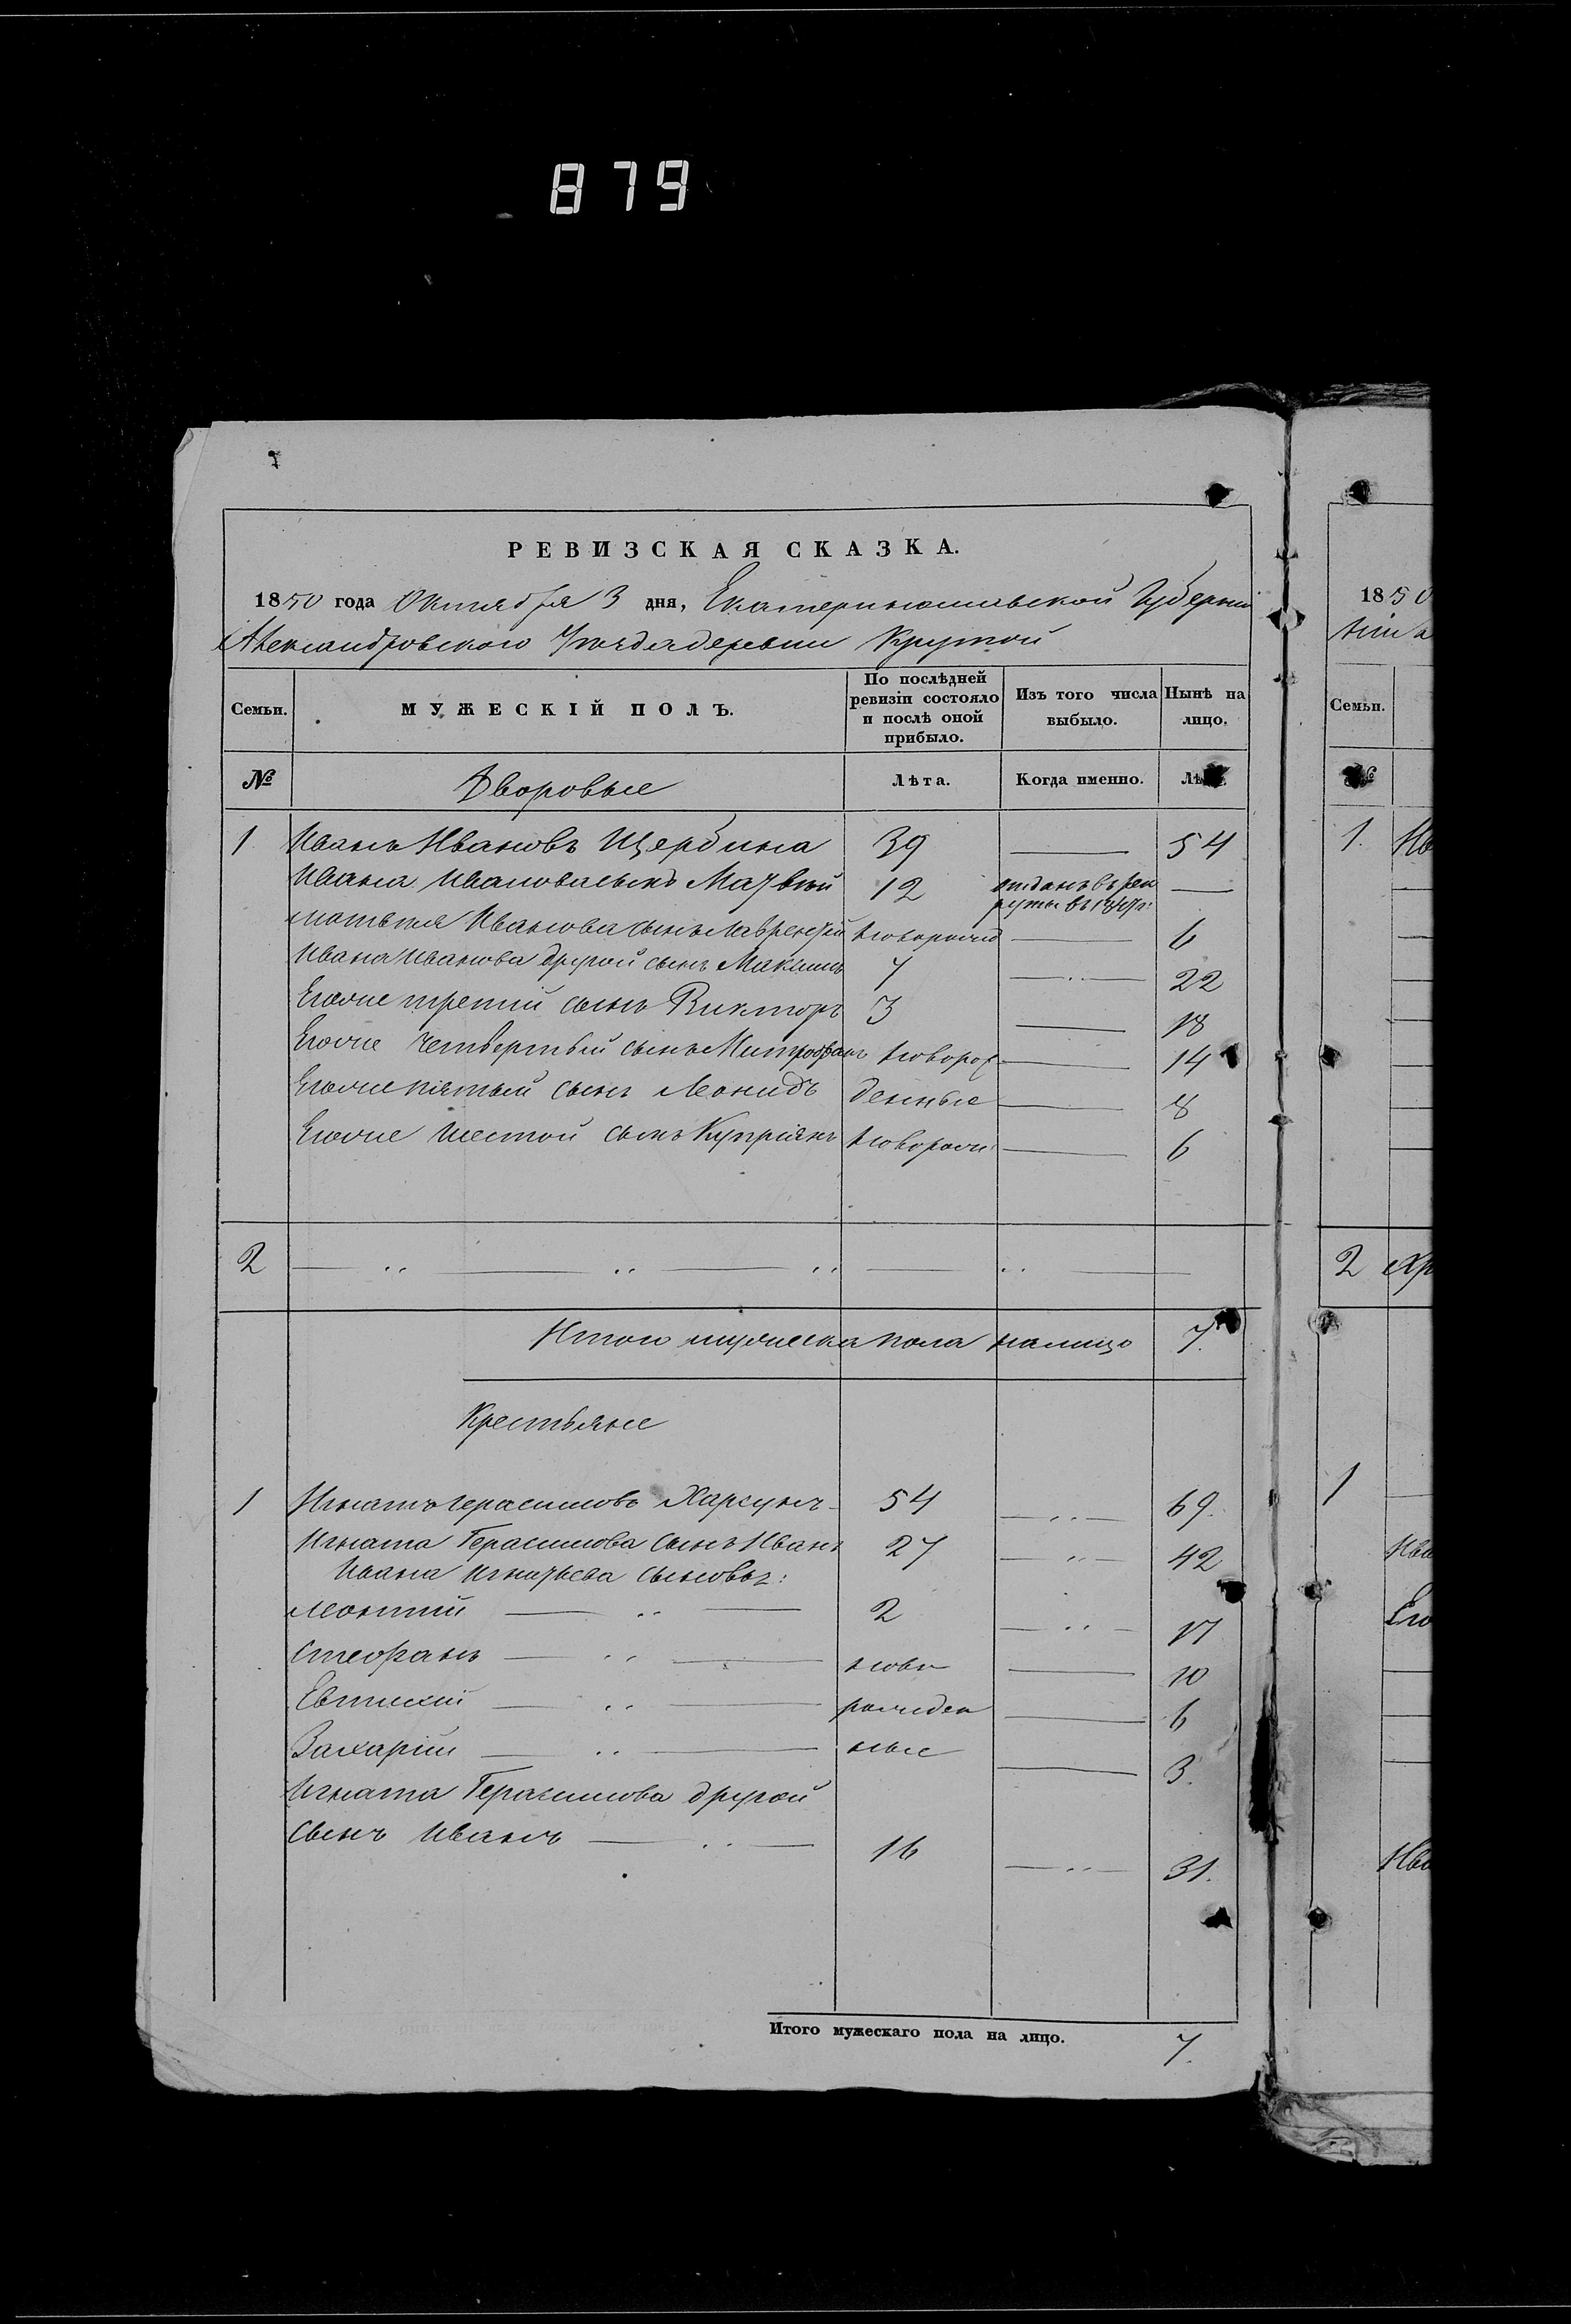 879
РЕВИЗСКАЯ СКАЗКА.
1850 года Октября 3 дня, Екатеринославской Губерніи
Александровского Уѣзда деревни Крутой
Семьи. МУЖЕСКІЙ ПОЛЪ. По послѣдней ревизіи состояло и послѣ оной прибыло. Изъ того числа выбыло. Нынѣ на лицо.
№ Дворовые Лѣта. Когда именно. Лѣта.
1 Иванъ Ивановъ Щербина 39 — 54
Ивана Иванова сынъ Матвѣй 12 отданъ въ рекруты въ г: —
Матвѣя Иванова сынъ Лаврентій новорожд — 6
Ивана Иванова другой сынъ Максимъ 7 — 22
Егоже третій сынъ Викторъ 3 — 18
Егоже четвертый сынъ Митрофанъ новорож — 14
Егоже пятый сынъ Леонидъ денные — 8
Егоже шестой сынъ Купріянъ новорожд — 6
2 — „ — „ — „ — „ —
Итого мужеска пола налицо 7.
Крестьяне
1 Игнатъ Герасимовъ Харсунъ 54 — „ — 69.
Игната Герасимова сынъ Иванъ 27 — „ — 42
Ивана Игнатьева сыновья:
Леонтій — „ — 2 — „ — 17
Стефанъ — „ — ново — 10
Евтихій — „ — рожден — 6
Захарій — „ — ные — 3.
Игната Герасимова другой
сынъ Иванъ — „ — 16 — „ — 31.
Итого мужескаго пола на лицо. 7.
1850
Семьи.
№
1.
2
1
Ива
Его
Ива